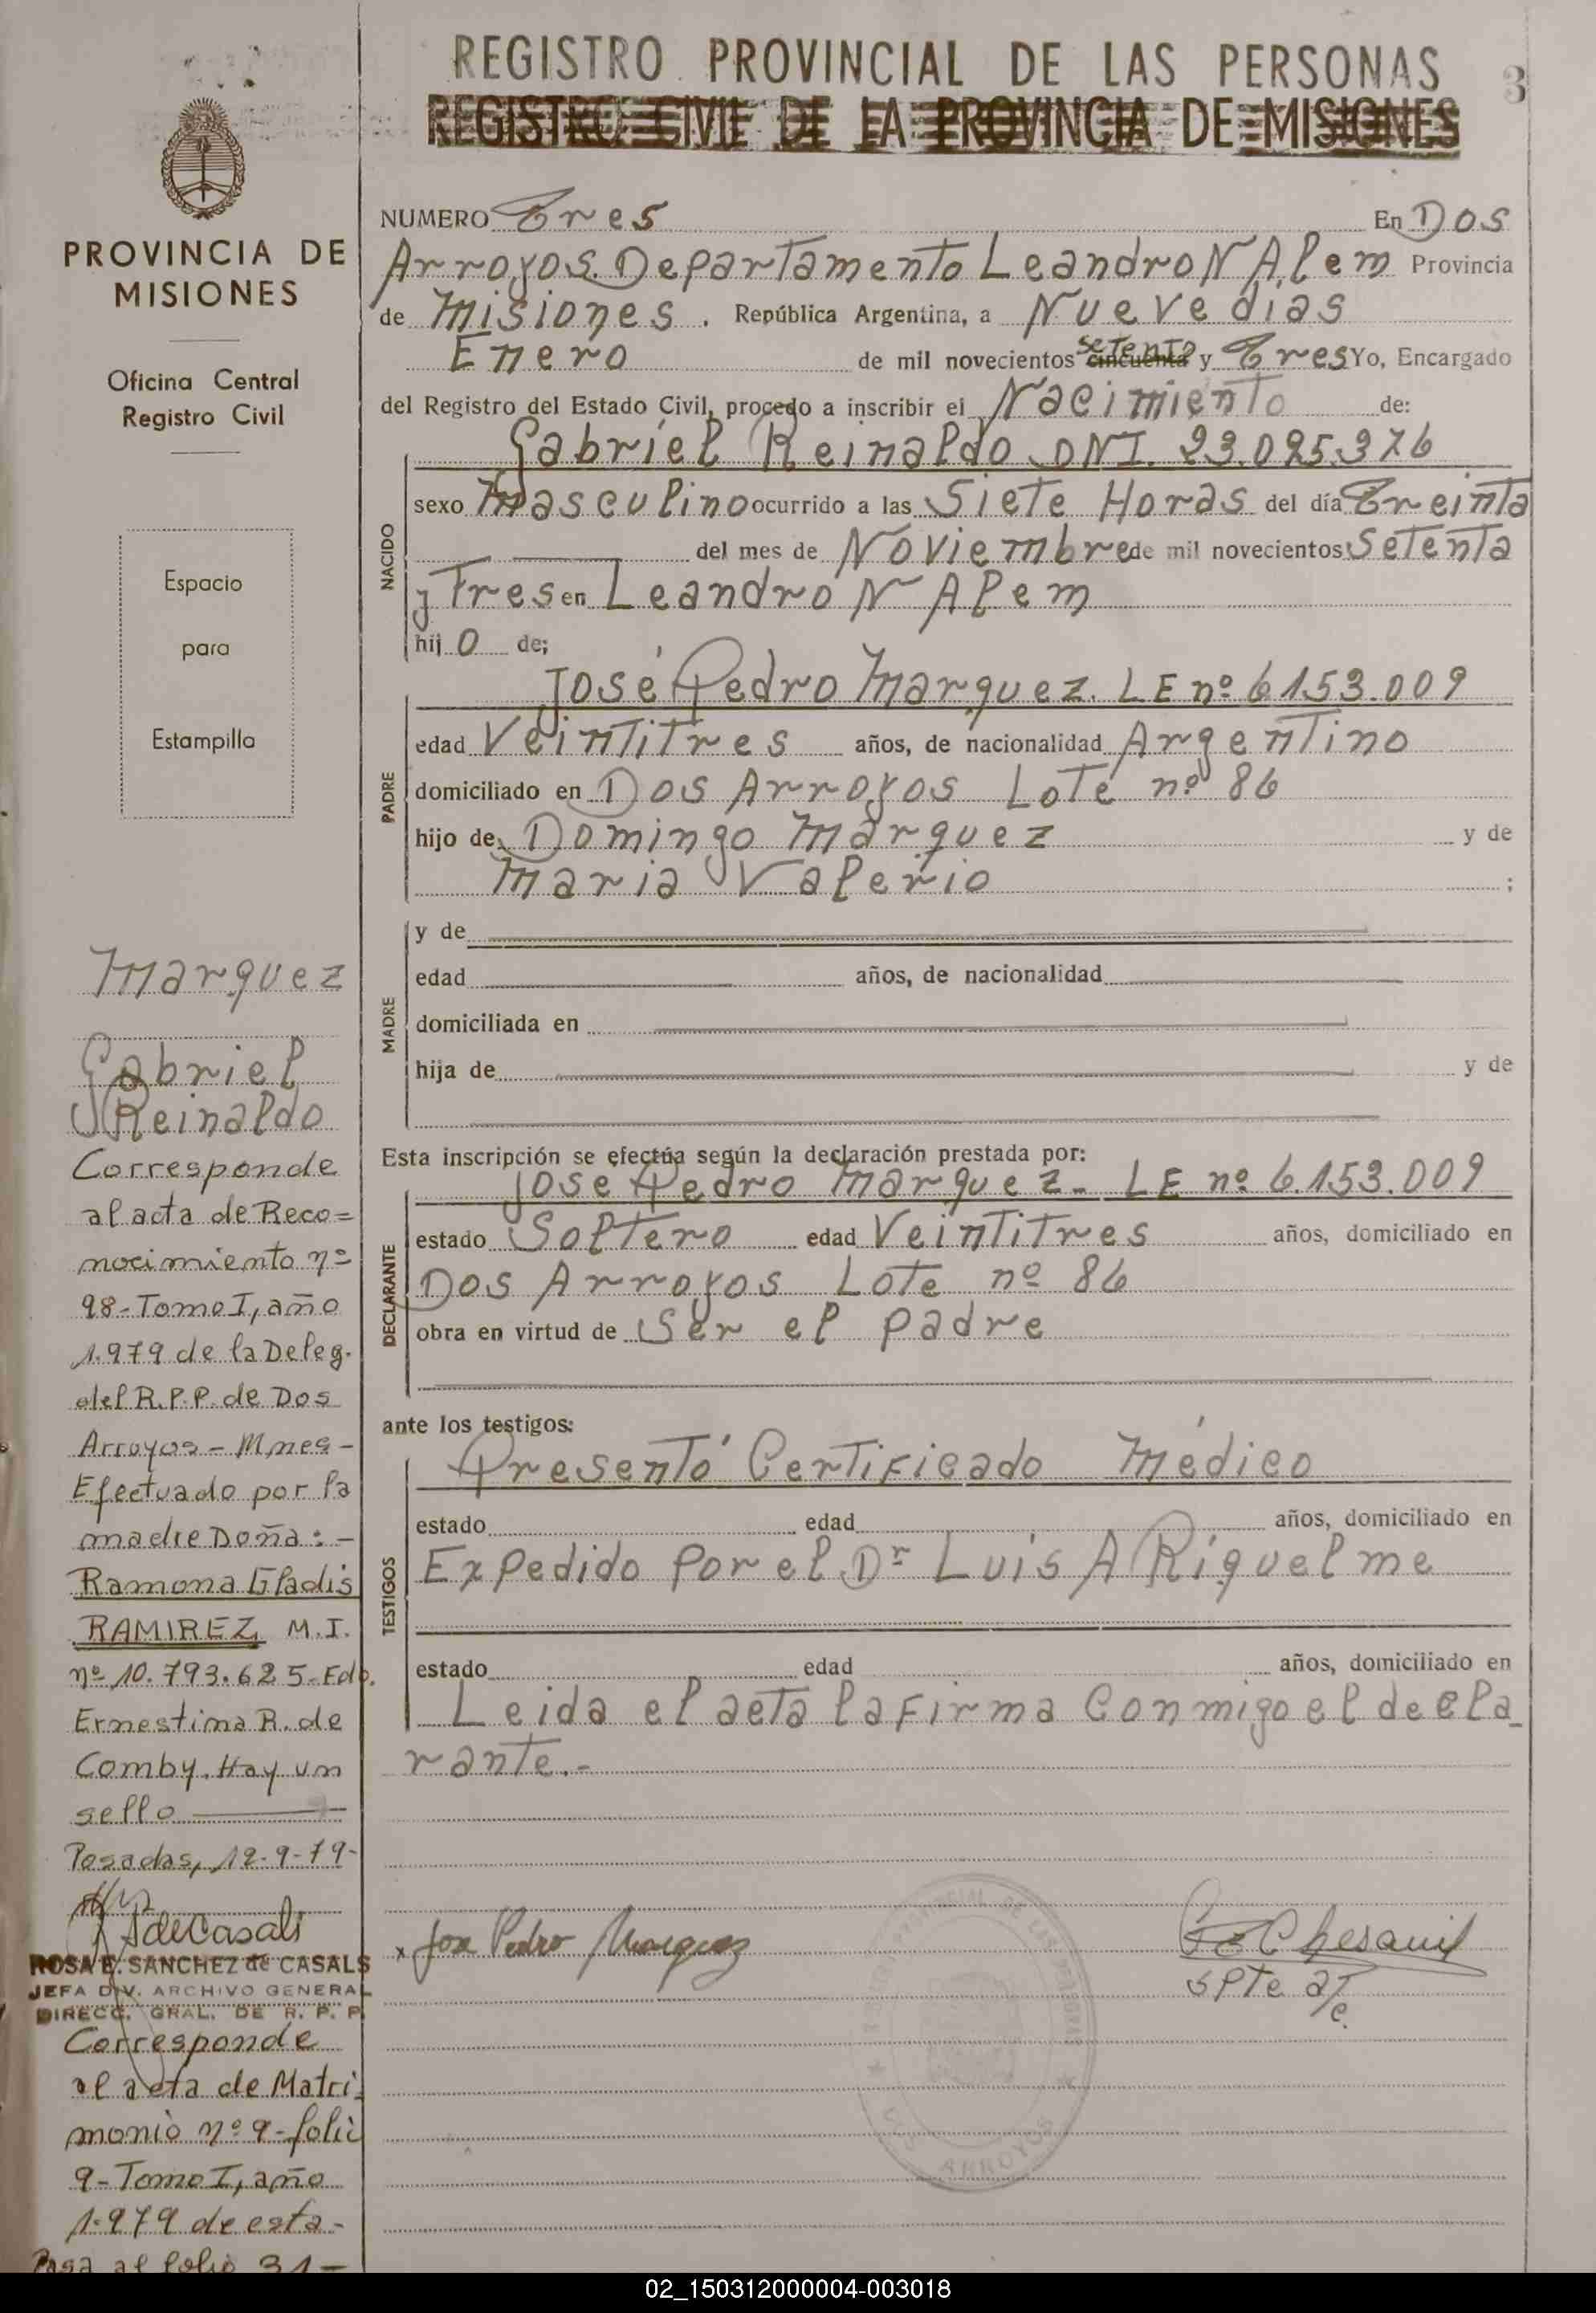 REGISTRO PROVINCIAL DE LAS PERSONAS
3
REGISTRO CIVIL DE LA PROVINCIA DE MISIONES
PROVINCIA DE
MISIONES
Oficina Central
Registro Civil
Espacio
para
Estampilla
NUMERO Tres En Dos
Arroyos Departamento Leandro N Alem Provincia
de Misiones. República Argentina, a Nueve dias
Enero de mil novecientos cincuenta setenta y Tres Yo, Encargado
del Registro del Estado Civil, procedo a inscribir el Nacimiento de:
NACIDO
Gabriel Reinaldo DNI. 23.095.376
sexo Masculino ocurrido a las Siete Horas del día Treinta
del mes de Noviembre de mil novecientos Setenta
y Tres en Leandro N Alem
hij o de;
PADRE
José Pedro Marquez. LE nº 6153.009
edad Veintitres años, de nacionalidad Argentino
domiciliado en Dos Arroyos Lote nº 86
hijo de Domingo Marquez y de
Maria Valerio ;
MADRE
y de
edad años, de nacionalidad
domiciliada en
hija de y de
Esta inscripción se efectúa según la declaración prestada por:
DECLARANTE
Jose Pedro Marquez - LE nº 6.153.009
estado Soltero edad Veintitres años, domiciliado en
Dos Arroyos Lote nº 86
obra en virtud de Ser el padre
ante los testigos:
TESTIGOS
Presentó Certificado Médico
estado edad años, domiciliado en
Expedido Por el Dr Luis A Riquelme
estado edad años, domiciliado en
Leida el acta la Firma Conmigo el decla
rante.-
Jose Pedro Marquez
Spte a/c.
ARROYOS
Marquez
Gabriel
Reinaldo
Corresponde
al acta de Reco=
nocimiento nº
98-Tomo I, año
1.979 de la Deleg.
del R.P.P. de Dos
Arroyos - Mnes -
Efectuado por la
madre Doña: -
Ramona Gladis
RAMIREZ M.I.
nº 10.793.625-Edo.
Ernestina R. de
Comby. Hay un
sello
Posadas, 12-9-79-
SdeCasals
ROSA E. SANCHEZ de CASALS
JEFA DIV. ARCHIVO GENERAL
DIRECC. GRAL. DE R. P. P.
Corresponde
al acta de Matri
monio nº 9-folio
9-Tomo I, año
1.979 de esta-
Pasa al folio 31-
02_150312000004-003018